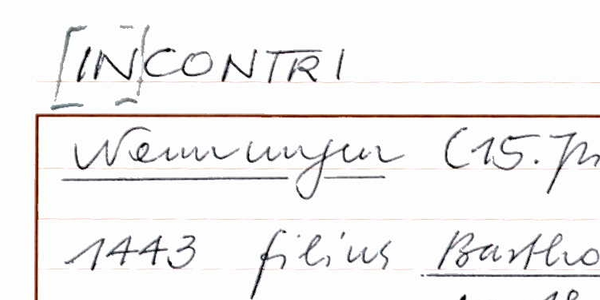 [IN]CONTRI
Nennungen (15. Jh
1443 filius Bartho